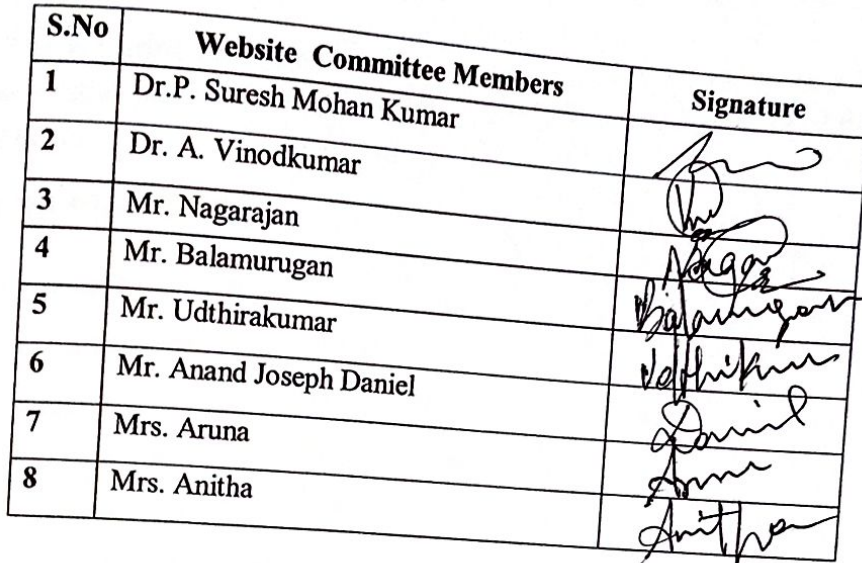 S.No Website Committee Members Signature
1 Dr.P. Suresh Mohan Kumar
2 Dr. A. Vinodkumar
3 Mr. Nagarajan
4 Mr. Balamurugan Balamurugan
5 Mr. Udthirakumar
6 Mr. Anand Joseph Daniel Daniel
7 Mrs. Aruna
8 Mrs. Anitha Anitha